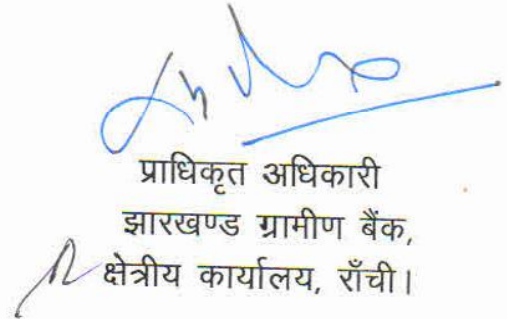 प्राधिकृत अधिकारी
झारखण्ड ग्रामीण बैंक,
क्षेत्रीय कार्यालय, राँची।